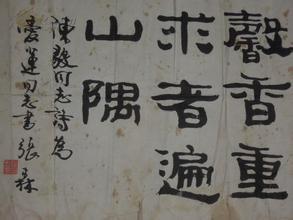 馨香重
求者遍
山隅
陳毅同志詩為
同志書張森